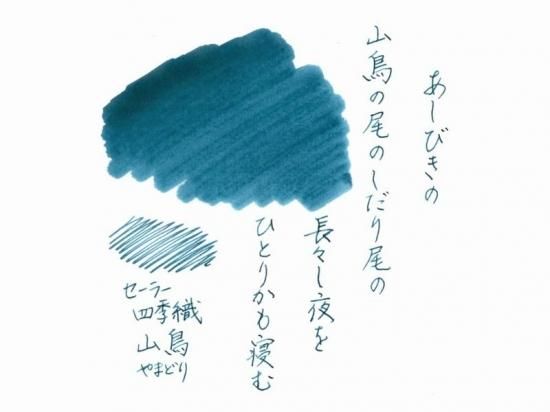 あしびきの
山鳥の尾のしだり尾の
長々し夜を
ひとりかも寝む
セーラー
四季織
山鳥
やまどり